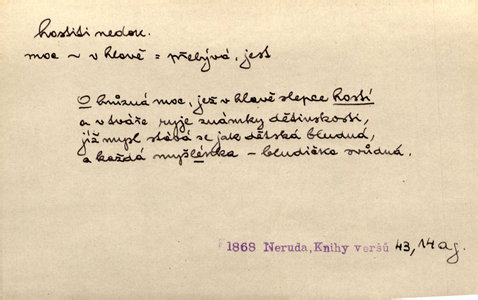 hostiti nedok.
moc ~ v hlavě = přebývá, jest
O hrůzná moc, jež v hlavě slepce hostí
a v tváře ryje známky dětinskosti,
již mysl stává se jak dětská bludná,
a každá myšlénka – bludička svůdná.
1868 Neruda, Knihy veršů 43, 14 ag.